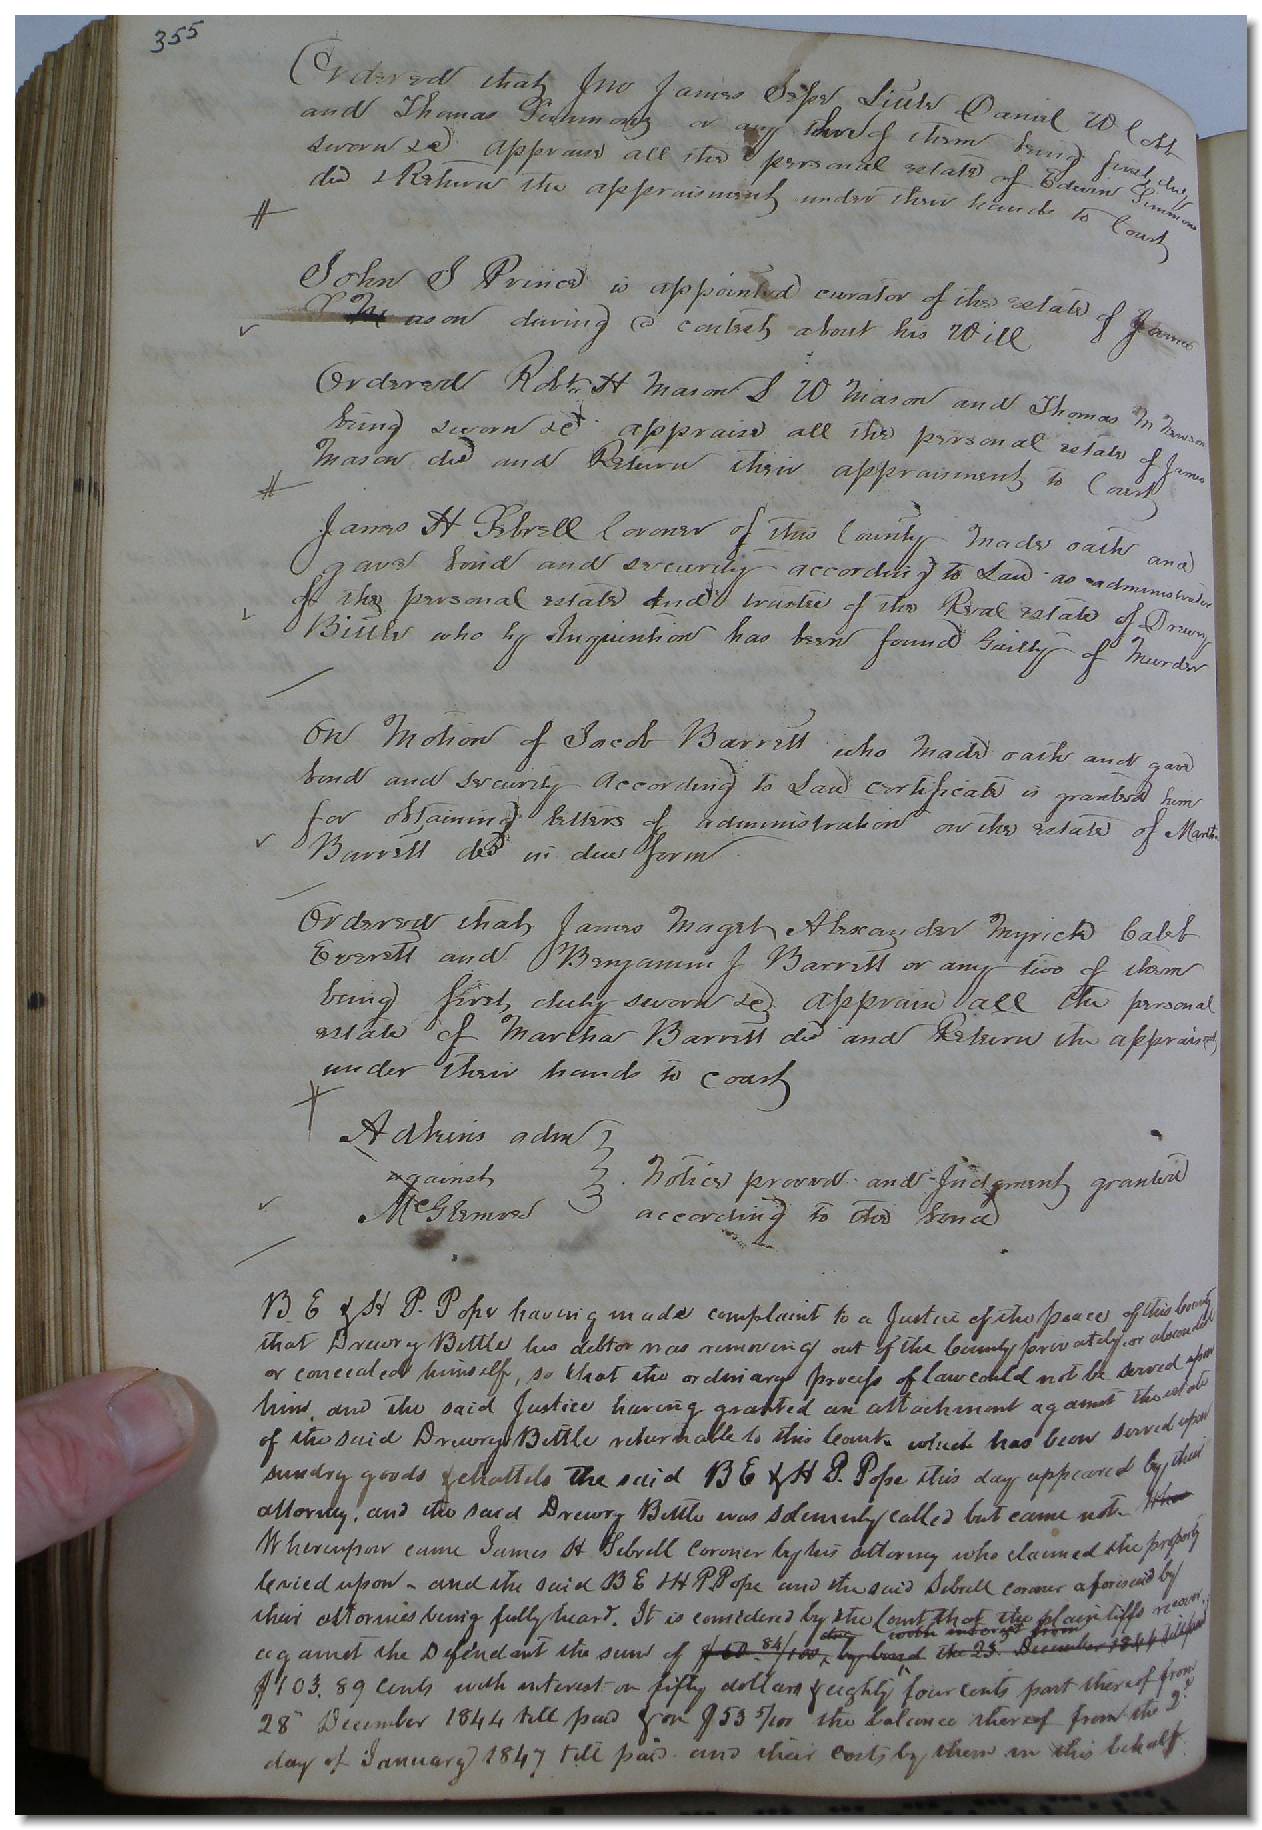 355
Ordered that Jno James Sipe Little Daniel W Cobb
and Thomas Simmons or any three of them being first duly
sworn &c appraise all the personal estate of Edwin Simmons
decd & Return the appraisment under their hands to Court
John S Prince is appointed curator of the estate of James
Mason during a contest about his Will
Ordered Robt H Mason L W Mason and Thomas M Newsom
being sworn &c appraise all the personal estate of James
Mason decd and Return their appraisment to Court
James H Sebrell Coroner of this County made oath and
gave bond and security according to Law as administrator
of the personal estate and trustee of the Real estate of Drewry
Bittle who by Inquisition has been found Guilty of Murder
On Motion of Jacob Barrett who made oath and gave
bond and security According to Law certificate is granted him
for obtaining letters of administration on the estate of Martha
Barrett decd in due form
Ordered that James Maget Alexander Myrick Caleb
Everett and Benjamin J Barrett or any two of them
being first duly sworn &c appraise all the personal
estate of Martha Barrett decd and Return the appraismt
under their hands to court
Adkins adm
against
McGlemred
Notice proved and Judgment granted
according to the bond
B. E & H P. Pope having made complaint to a Justice of the peace of this County
that Drewry Bittle his debtor was removing out of the County privately or absconded
or concealed himself, so that the ordinary process of law could not be served upon
him, and the said Justice having granted an attachment against the estate
of the said Drewry Bittle returnable to this Court which has been served upon
sundry goods & chattels the said B E & H P. Pope this day appeared by their
attorney, and the said Drewry Bittle was solemnly called but came not
Whereupon came James H Sebrell Coroner by his attorney who claimed the property
levied upon - and the said B E & H P. Pope and the said Sebrell coroner aforesaid by
their attornies being fully heard. It is considered by the Court that the plaintiffs recover
against the Defendant the sum of $50.84/100, due by bond with interest from the 25 December 1844 till paid
$103.89 cents with interest on fifty dollars & eighty four cents part thereof from
28th December 1844 till paid & on $53 5/100 the balance thereof from the 2d
day of January 1847 till paid and their costs by them in this behalf